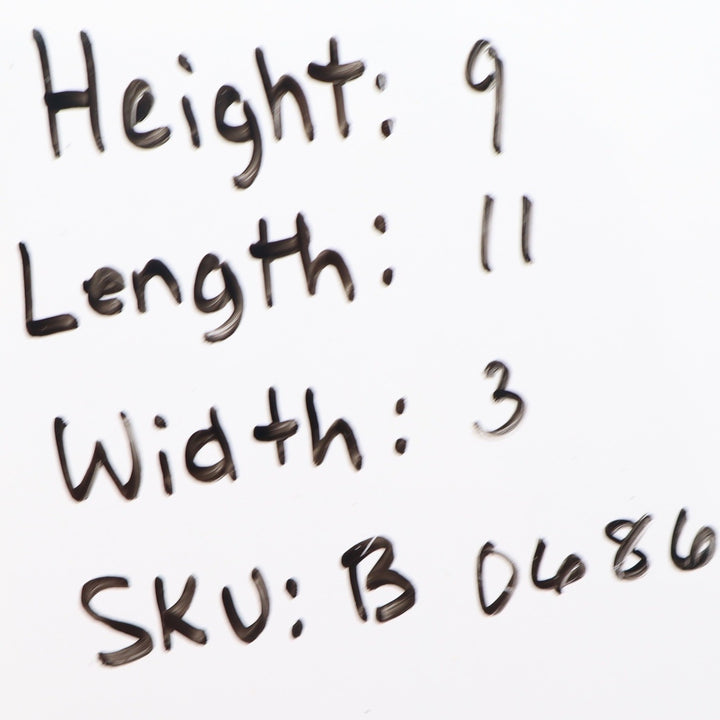 Height: 9
Length: 11
Width: 3
SKU: B 0686